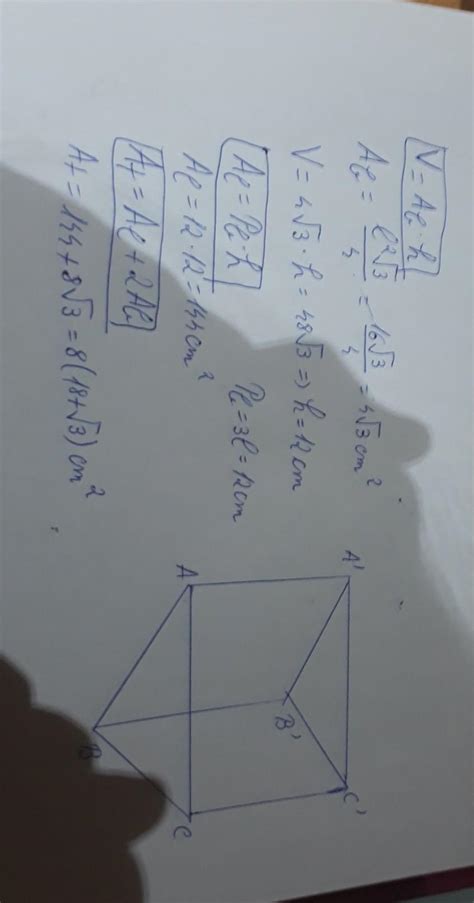 V = Ab · h
Ab = l²√3/4 = 16√3/4 = 4√3 cm²
V = 4√3 · h = 48√3 => h = 12 cm
Al = Pb · h
Pb = 3l = 12 cm
Al = 12 · 12 = 144 cm²
At = Al + 2Ab
At = 144 + 8√3 = 8(18+√3) cm²
A'
B'
C'
A
B
C